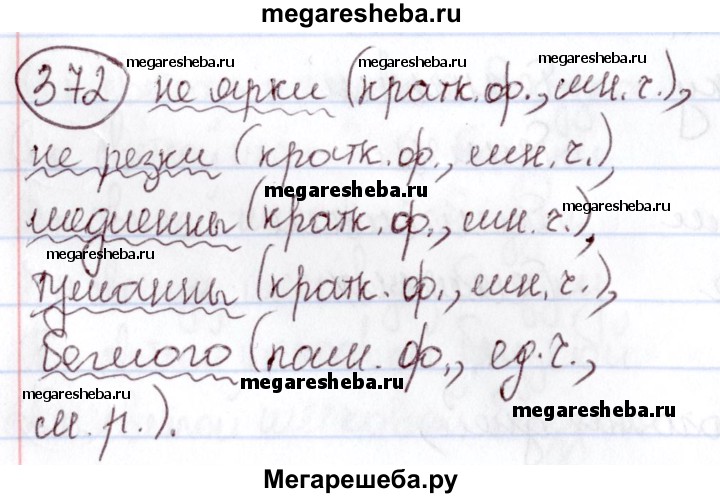 megaresheba.ru
372 не ярки (кратк. ф., мн. ч.),
megaresheba.ru megaresheba.ru megaresheba.ru
не резки (кратк. ф., мн. ч.),
megaresheba.ru
медленны (кратк. ф., мн. ч.),
megaresheba.ru
megaresheba.ru
туманны (кратк. ф., мн. ч.),
беглого (полн. ф., ед. ч.,
megaresheba.ru
megaresheba.ru
megaresheba.ru
м. р.).
Мегарешеба.ру